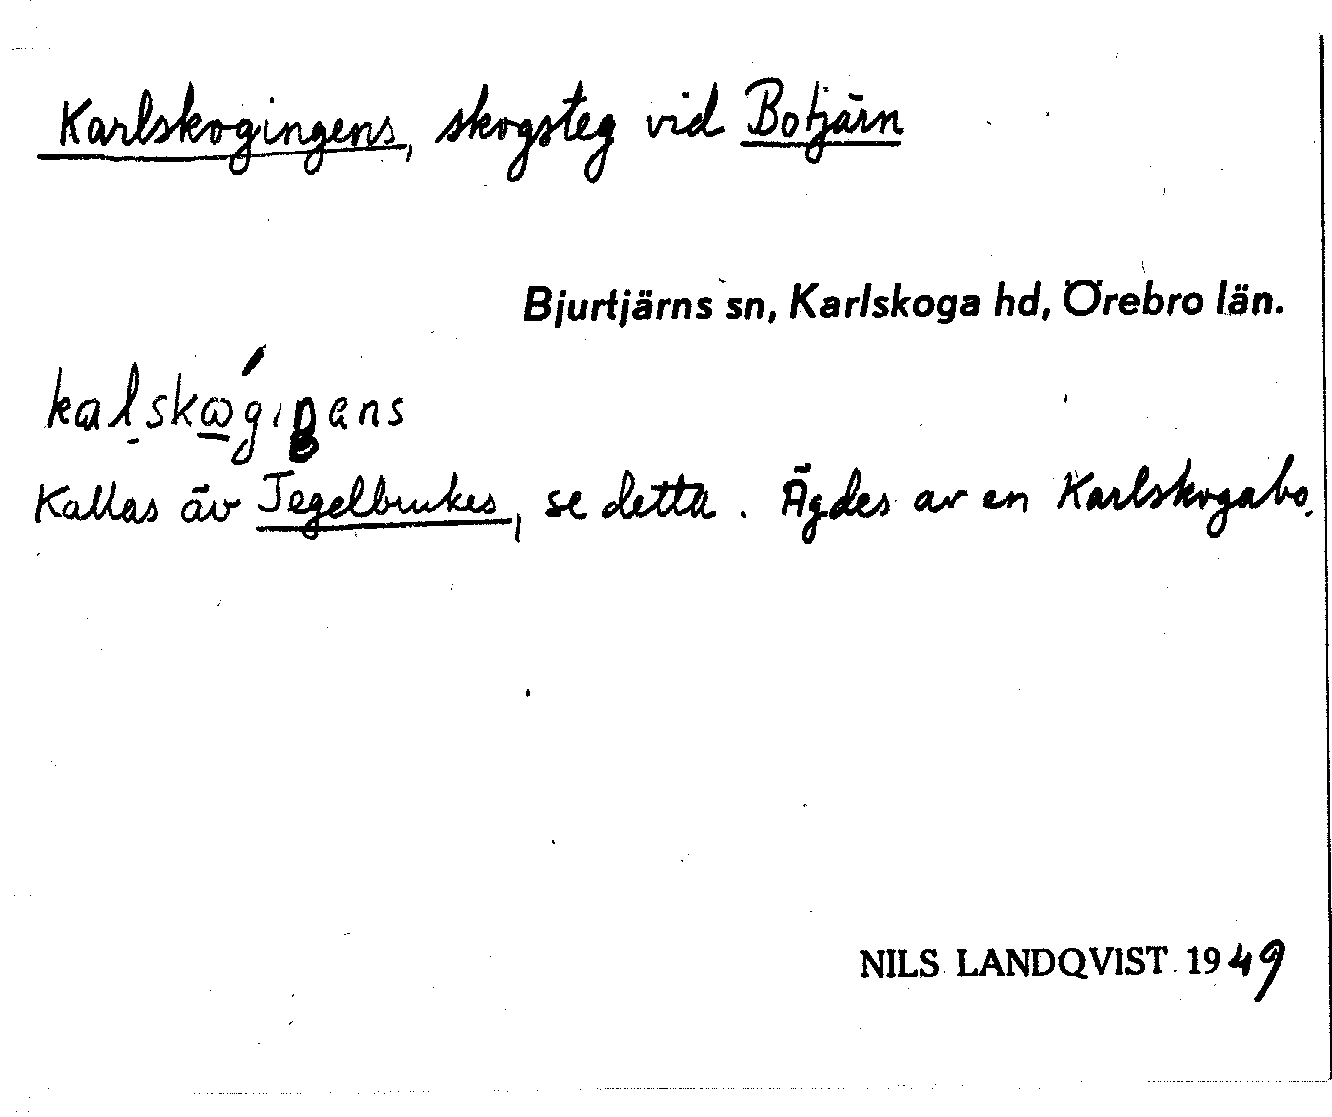 Karlskogingens, skogsteg vid Botjärn
Bjurtjärns sn, Karlskoga hd, Örebro län.
Kallas äv Tegelbrukes, se detta. Ägdes av en Karlskogabo.
NILS LANDQVIST 1949